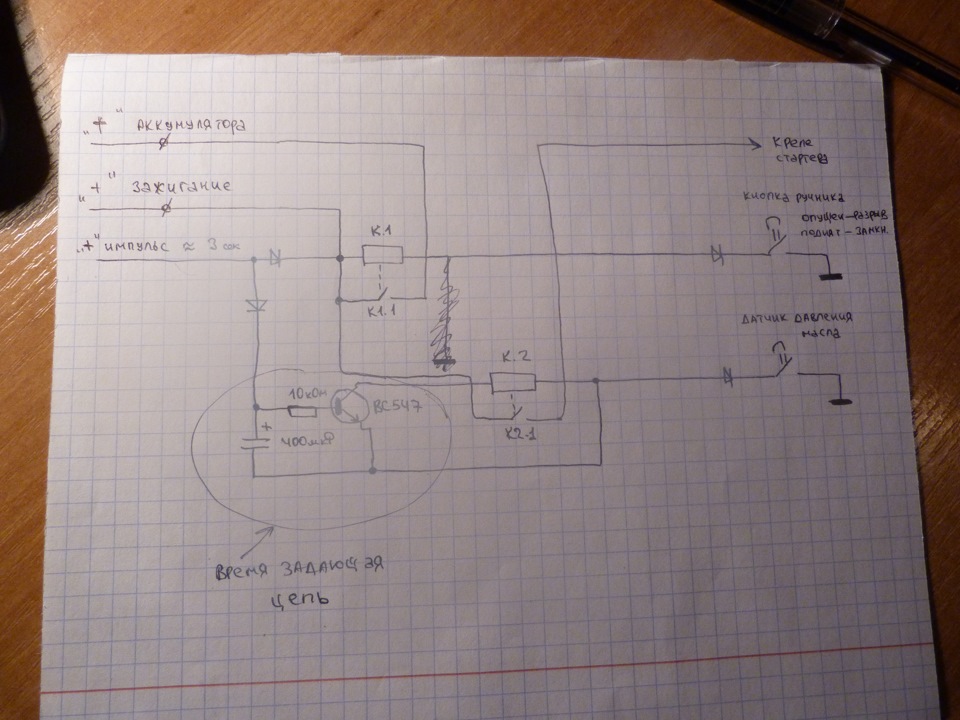 „+" аккумулятора
„+" зажигание
„+" импульс ≈ 3 сек
К реле
стартера
кнопка ручника
опущен-разрыв
поднят-замкн.
К.1
К1.1
Датчик давления
масла
К.2
К2.1
10кОм
BC547
+
400мкФ
Время задающая
цепь